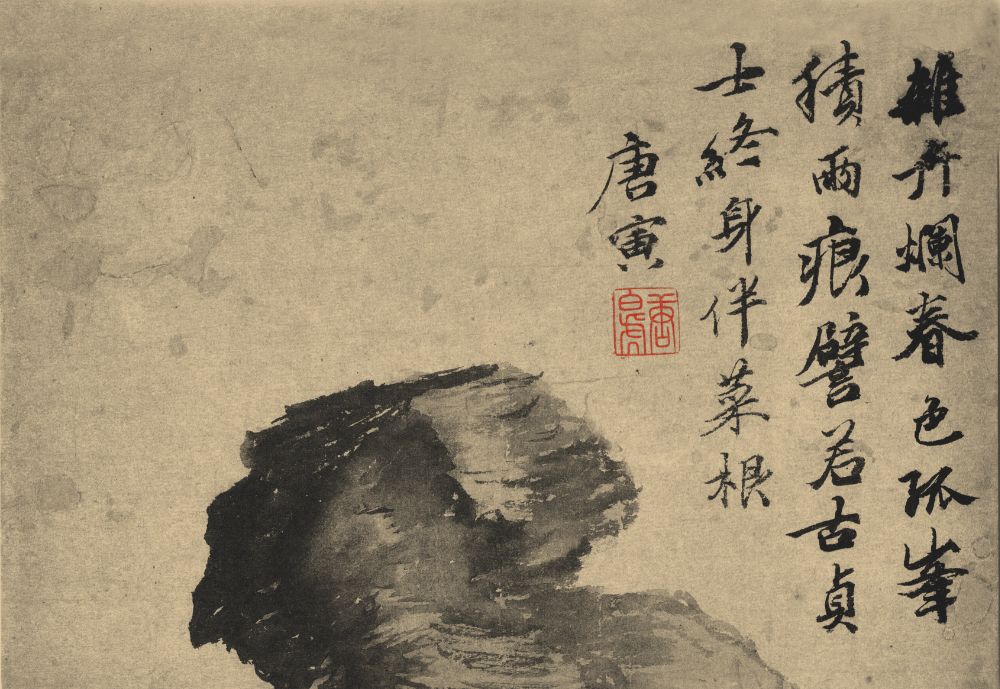 雜卉爛春色孤峯
積雨痕譬若古貞
士終身伴菜根
唐寅
唐白虎